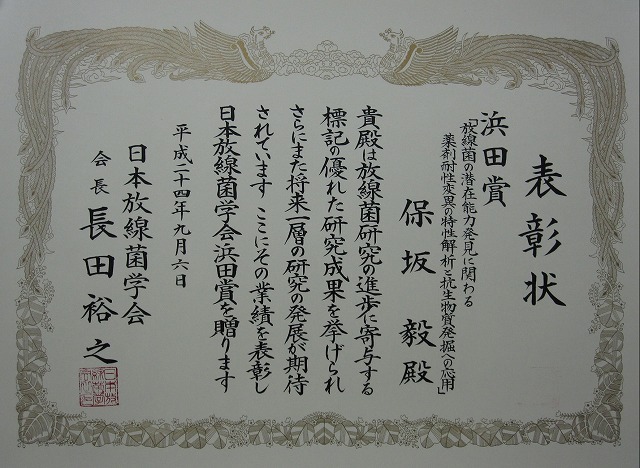 表彰状
浜田賞
「放線菌の潜在能力発見に関わる
薬剤耐性変異の特性解析と抗生物質発掘への応用」
保坂 毅殿
貴殿は放線菌研究の進歩に寄与する
標記の優れた研究成果を挙げられ
さらにまた将来一層の研究の発展が期待
されています ここにその業績を表彰し
日本放線菌学会浜田賞を贈ります
平成二十四年九月六日
日本放線菌学会
会長 長田裕之